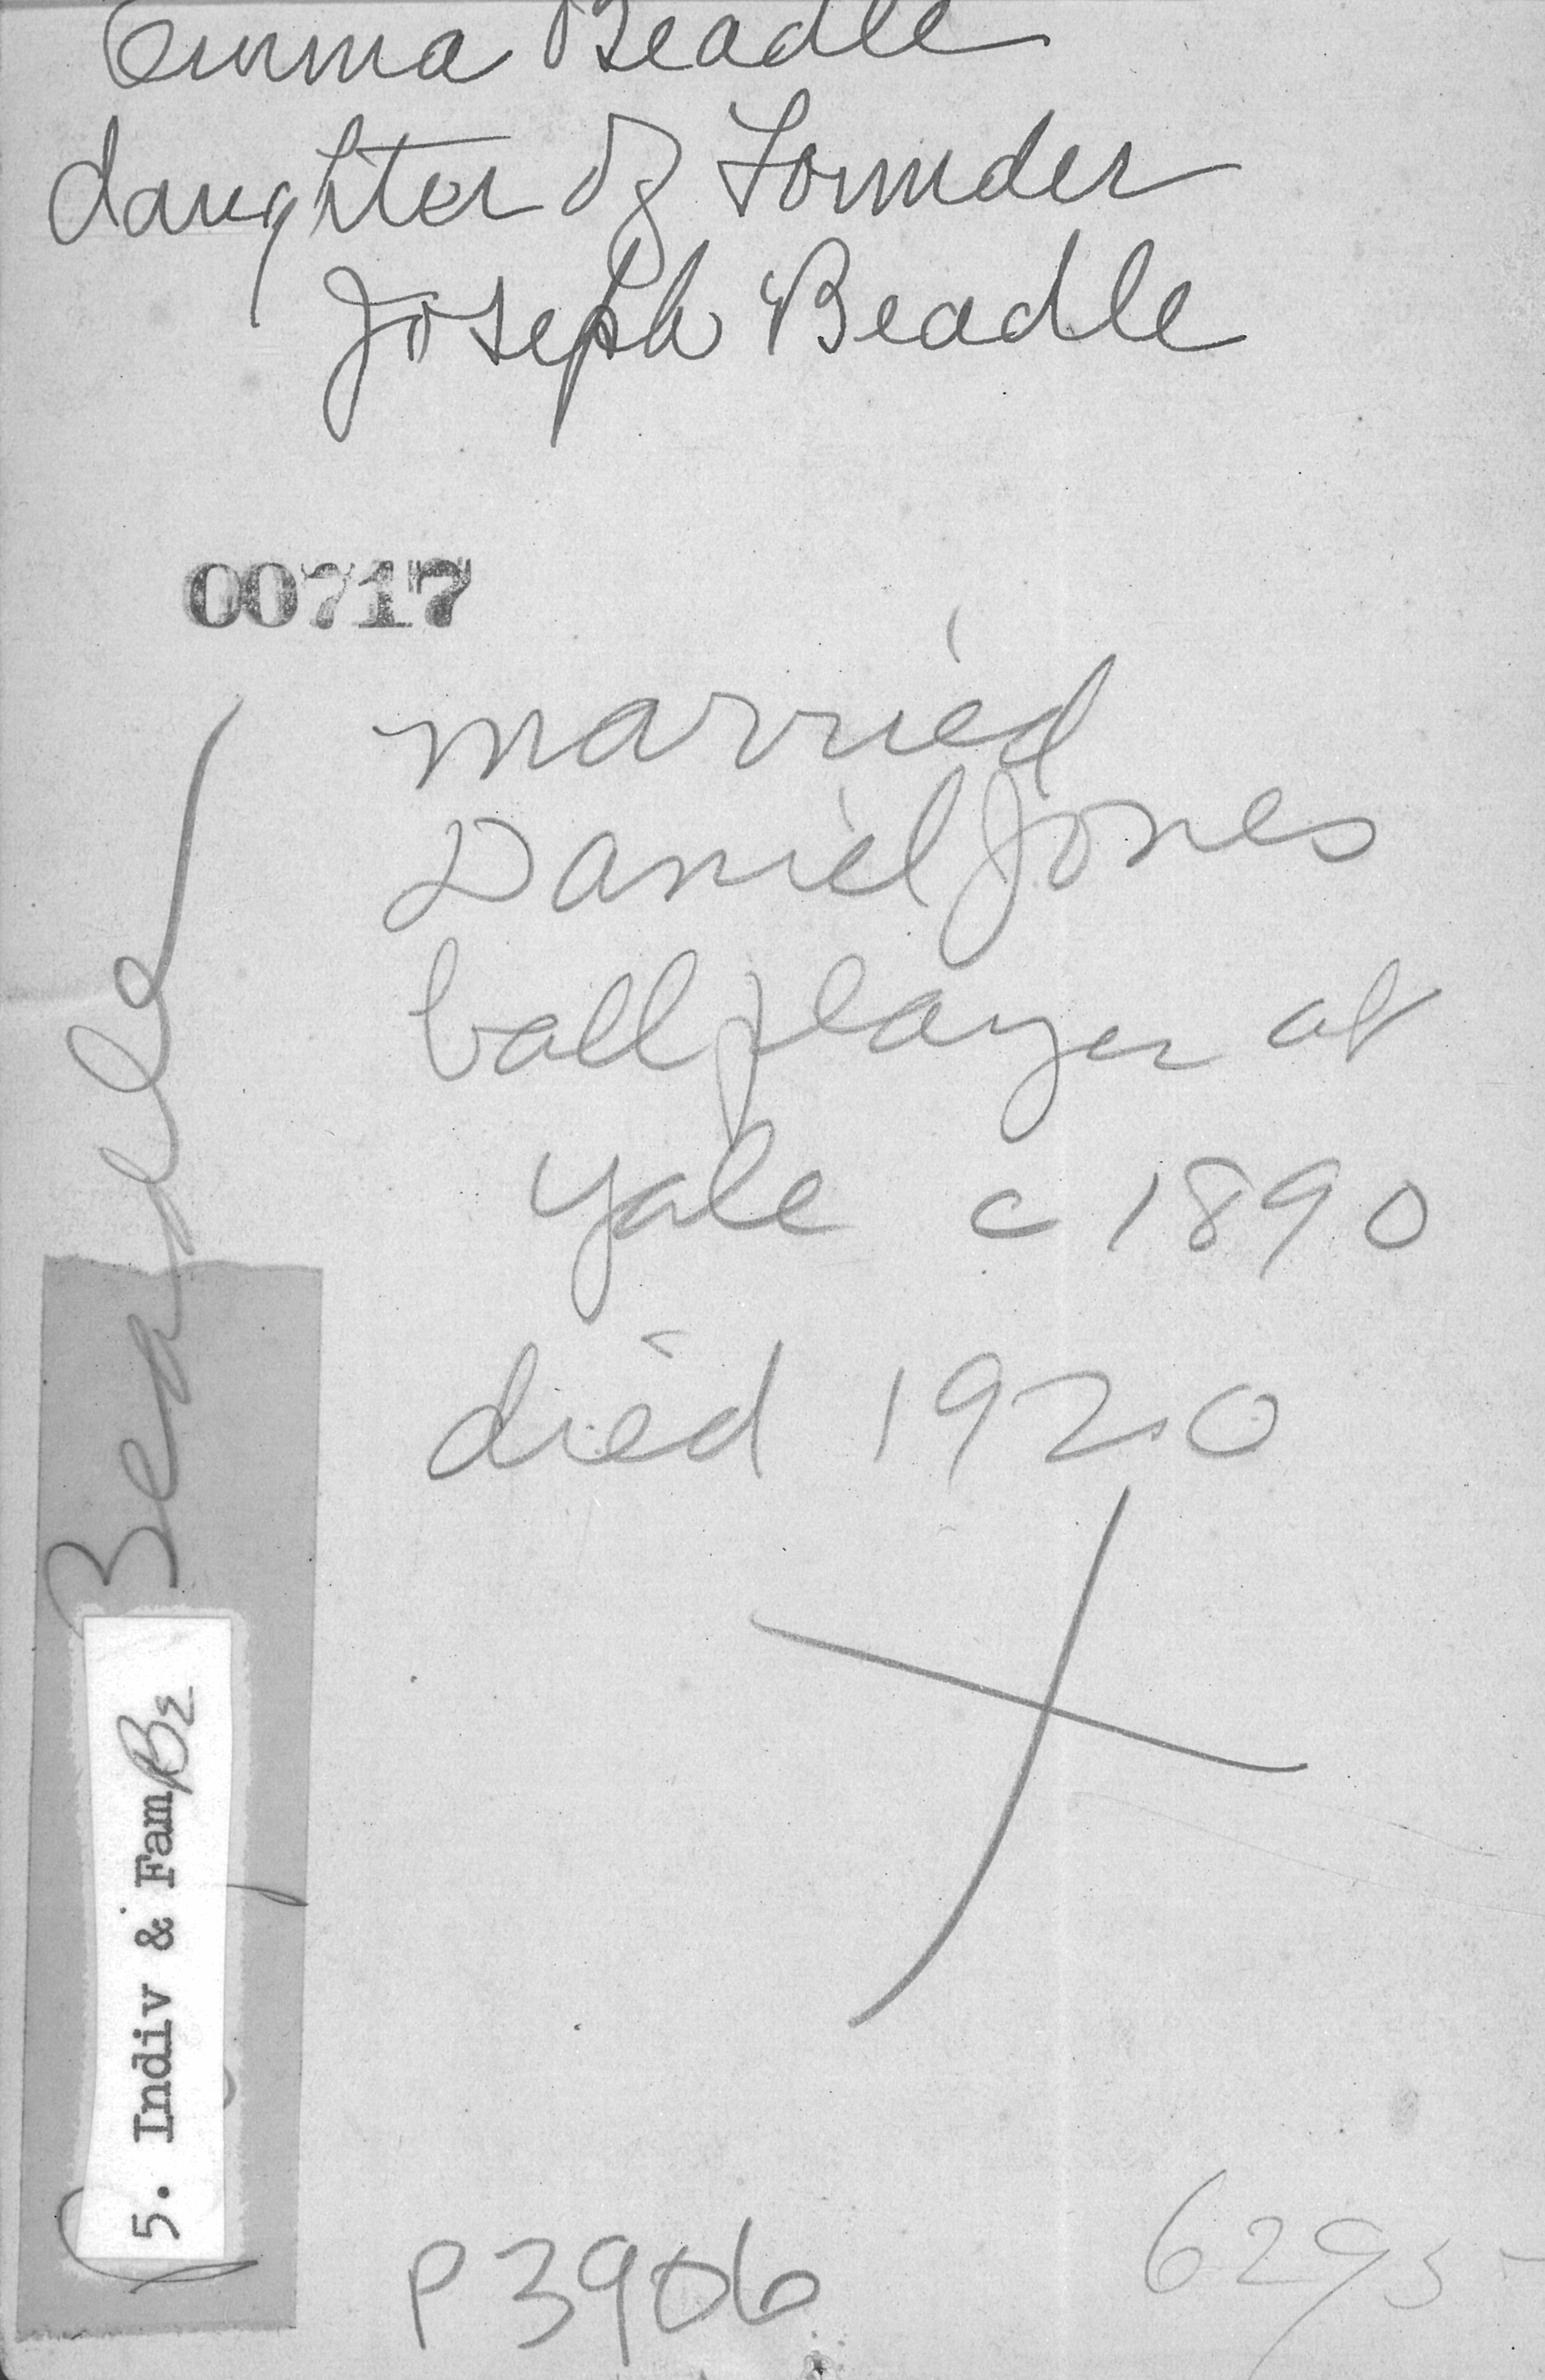 Emma Beadle
daughter of Founder
Joseph Beadle
00717
married
Daniel Jones
ball player at
Yale c 1890
died 1920
Beadle
5. Indiv & Fam Be
P3906
6295